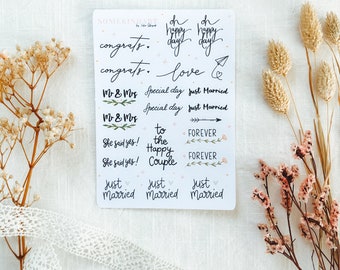 oh
happy
day!
oh
happy
day!
congrats
congrats
love
Mr & Mrs
Special day
Just Married
Special day
Just Married
Mr & Mrs
She said yes!
to
the
Happy
Couple
FOREVER
She said yes!
FOREVER
Just
Married
Just
Married
Just
Married